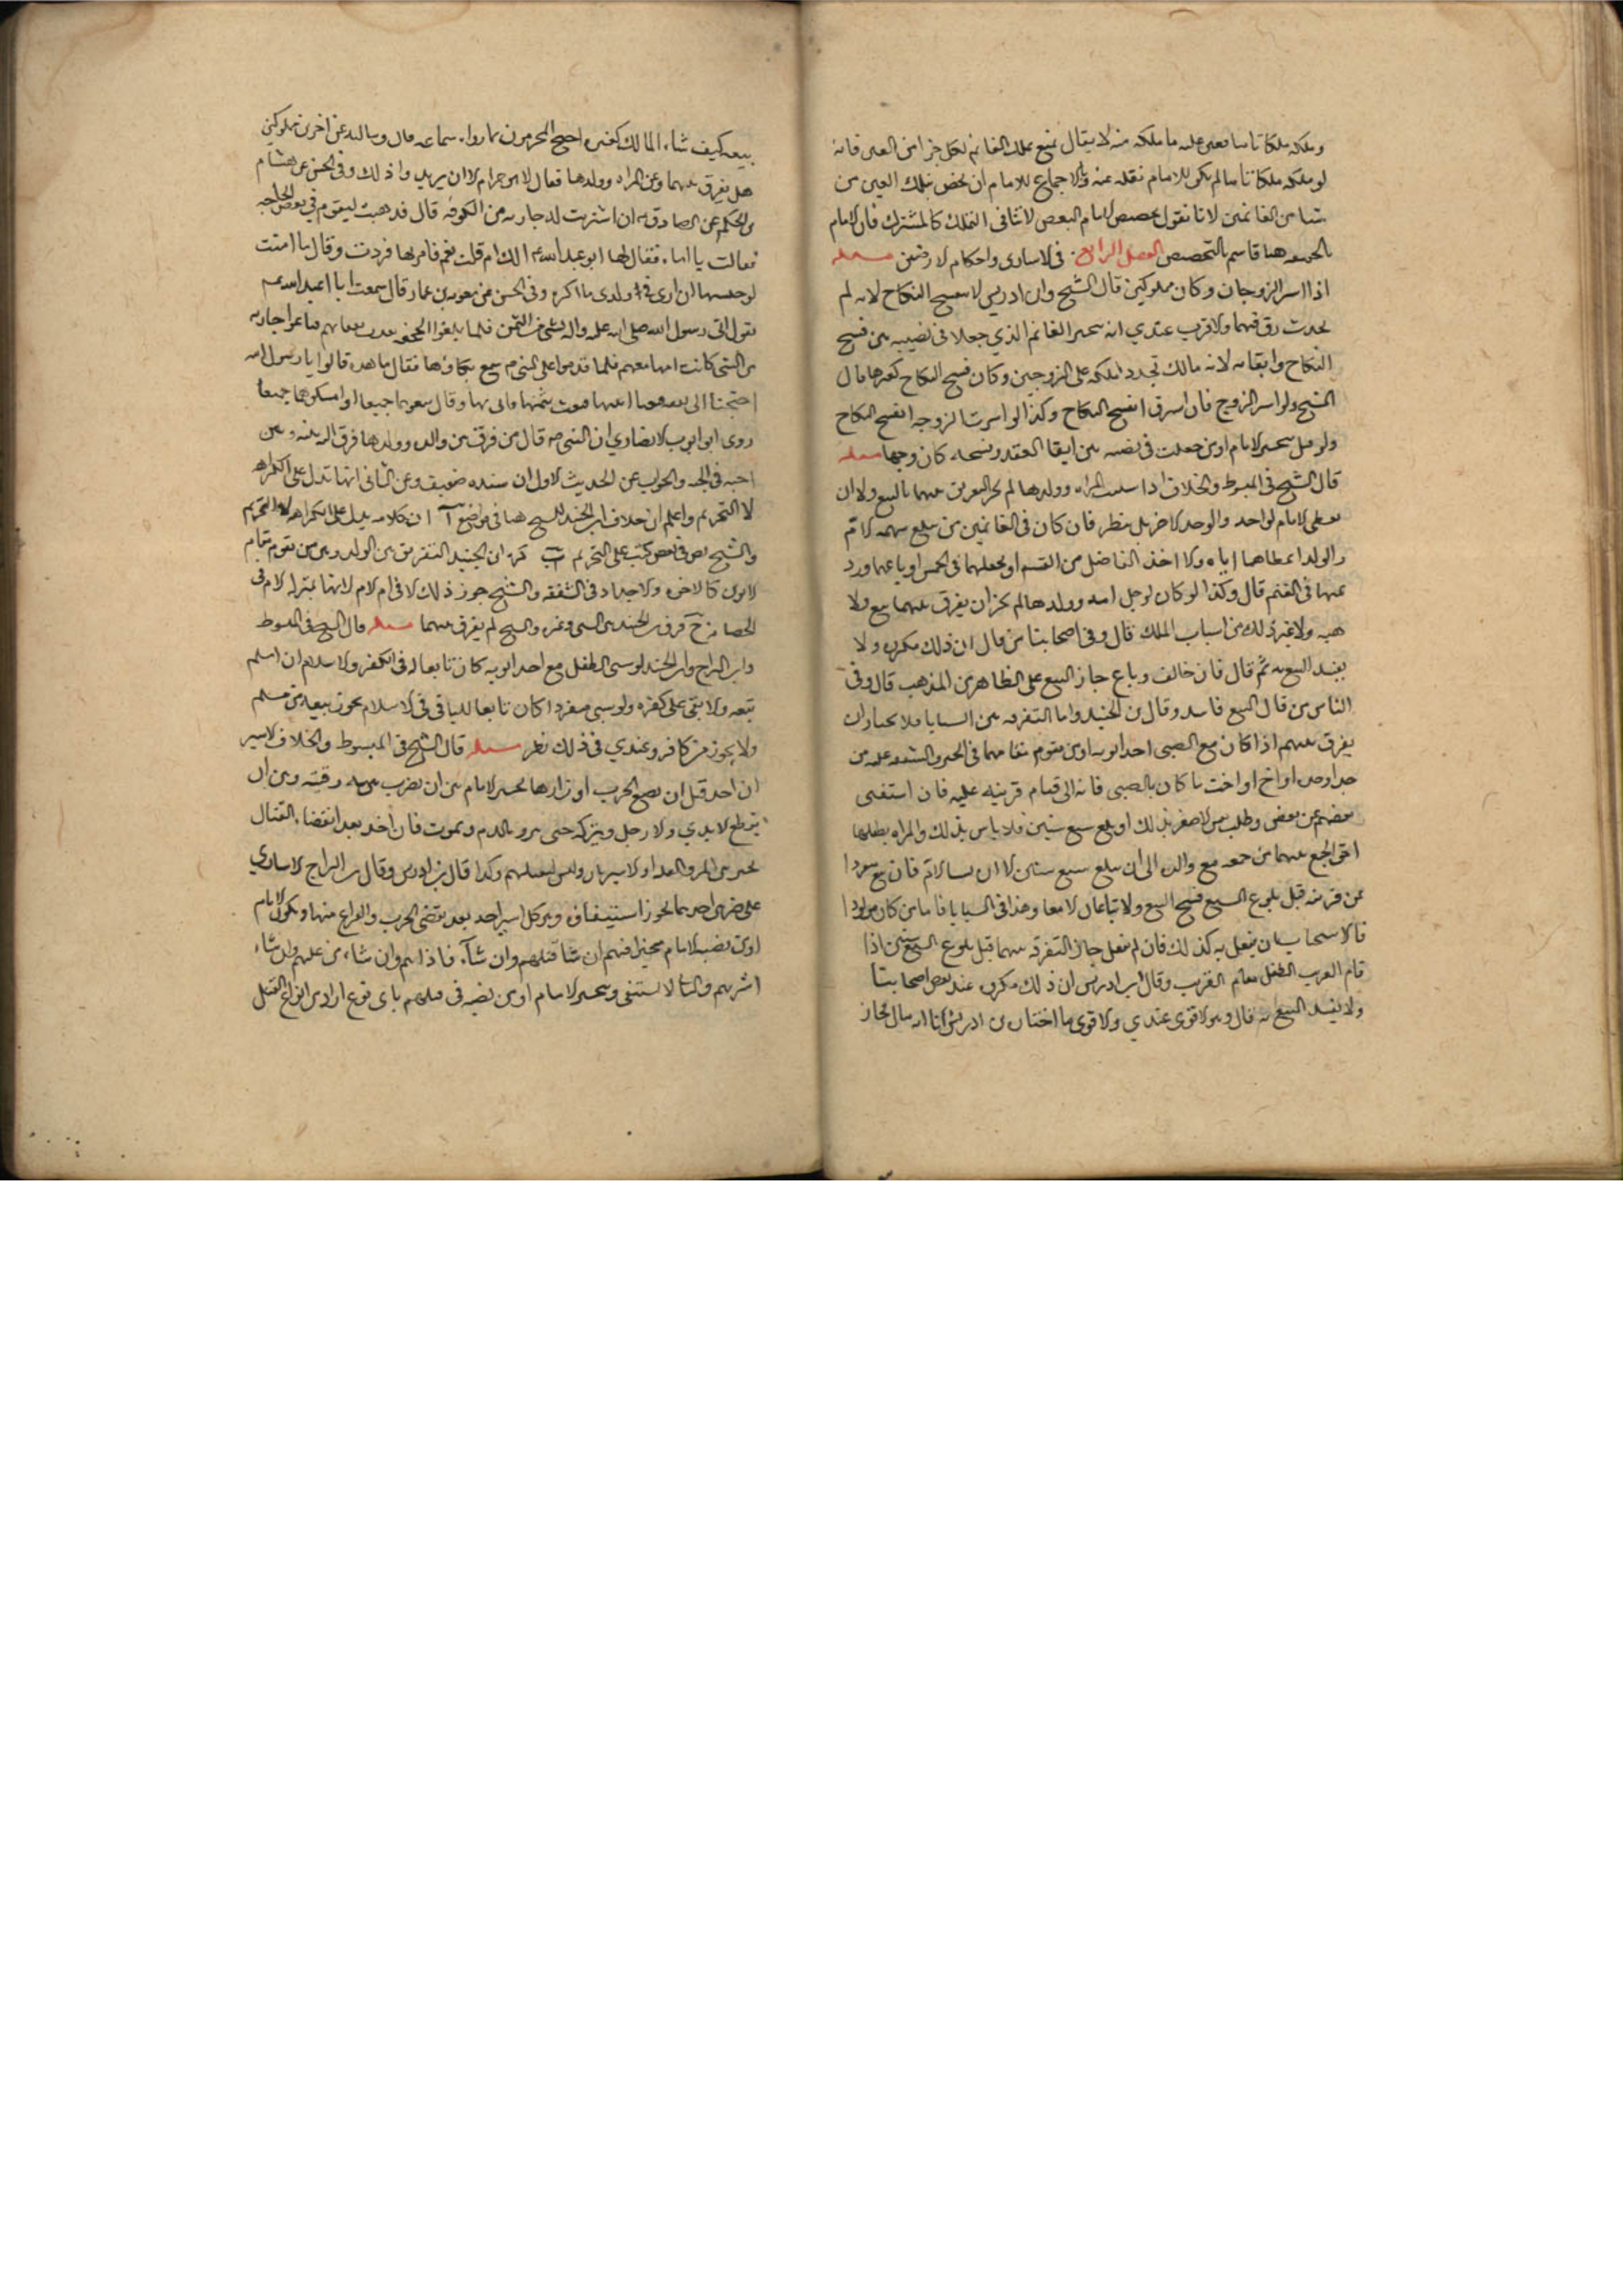 وملكه ملكا تاما فعين عليه ما ملكه منه لا يقال نمنع تملك الغانم لكل جزء من العين فانه
لو ملكه ملكا تاما لم يكن للامام نقله عنه وبالاجماع للامام ان يخص بتلك العين من
شاء من الغانمين لانا نقول تخصيص الامام البعض لا ينافي التملك كالمشترك فان الامام
هنا قاسم بالتخصيص الفصل الرابع في الاسارى واحكام الارضين مسئله
اذا اسر الزوجان وكان مملوكين قال الشيخ وابن ادريس لا ينفسخ النكاح لانه لم
يحدث رق فيهما والاقرب عندي انه يتخير الغانم الذي جعلا في نصيبه بين فسخ
النكاح وابقائه لانه مالك تجدد ملكه على الزوجين وكان فسخ النكاح كغيرها قال
الشيخ ولو اسر الزوج فان استرق انفسخ النكاح وكذا لو اسرت الزوجه انفسخ النكاح
ولو قيل يتخير الامام او من جعلت في نصيبه بين ابقاء العقد وفسخه كان وجها مسئله
قال الشيخ في المبسوط والخلاف اذا سبيت المراه وولدها لم يجز التفريق بينهما بالبيع ولا ان
يعطي الامام لواحد والولد لاخر بل ينظر فان كان في الغانمين من يبلغ سهمه الام
والولد اعطاها اياه والا اخذ الفاضل من القسمه او يجعلهما في الخمس او باعهما ورد
ثمنهما في المغنم قال وكذا لو كان لرجل امه وولدها لم يجز ان يفرق بينهما ببيع ولا
هبه ولا غير ذلك من اسباب الملك قال وفي اصحابنا من قال ان ذلك مكروه ولا
يفسد البيع به ثم قال فان خالف وباع جاز البيع على الظاهر من المذهب قال وفي
الناس من قال البيع فاسد وقال بن الجنيد واما التفرقه بين السبايا فلا نختار ان
يفرق بينهم اذا كان مع الصبي احد ابويه او من يقوم مقامهما في الحنو والشفقه عليه من
جد او جده او اخ او اخت ما كان بالصبي فاقه الى قيام قرينه عليه فان استغنى
بعضهم عن بعض وطلب من الاصغر بذلك او بلغ سبع سنين فلا باس بذلك والمراه بطفلها
احق الجمع بينهما من جمعه مع والده الى ان يبلغ سبع سنين الا ان تشاء الام فان بيع مفردا
عن قرينه قبل بلوغ السبع فسخ البيع ولا تباعان الا معا وهذا في السبايا فاما من كان مولودا
فالاستحباب ان يفعل به كذلك فان لم يفعل جاز التفرقه بينهما قبل بلوغ السبع سنين اذا
قام القريب الطفل مقام القريب وقال ابن ادريس ان ذلك مكروه عند بعض اصحابنا
ولا يفسد البيع به قال وهو الاقوى عندي والاقوى ما اختاره بن ادريس لنا انه مال فجاز
بيعه كيف شاء المالك كغيره احتج المحرمون بما رواه سماعه قال وسالته عن اخوين مملوكين
هل يفرق بينهما وعن المراه وولدها فقال لا هو حرام الا ان يريدوا ذلك وفي الحسن عن هشام
بن الحكم عن الصادق ع انه اشتريت له جاريه من الكوفه قال فذهبت ليقوم في بعض الحاجه
فقالت يا اماه فقال لها ابو عبد الله ع الك ام قلت نعم فامر بها فردت وقال ما امنت
لو حبستها ان ارى في ولدي ما اكره وفي الحسن عن معويه بن عمار قال سمعت ابا عبد الله ع
يقول اتي رسول الله صلى الله عليه واله بسبي من اليمن فلما بلغوا الجحفه نفدت نفقاتهم فباعوا جاريه
من السبي كانت امها معهم فلما قدموا على النبي ص سمع بكاءها فقال ما هذه قالوا يا رسول الله
احتجنا الى نفقه فبعنا ابنتها فبعث بثمنها فاتي بها وقال بيعوهما جميعا او امسكوهما جميعا
روى ابو ايوب الانصاري ان النبي ص قال من فرق بين والده وولدها فرق الله بينه وبين
احبته في الجنه والجواب عن الحديث الاول ان سنده ضعيف وعن الثاني انها تدل على الكراهه
لا التحريم واعلم ان خلاف ابن الجنيد للشيخ هنا في مواضع آ ان كلامه يدل على الكراهه لا التحريم
والشيخ نص في بعض كتبه على التحريم ب كره ابن الجنيد التفريق بين الولد وبين من يقوم مقام
الابوين كالاخوه والاجداد في الشفقه والشيخ جوز ذلك الا في ام الام لانها بمنزله الام في
الحضانه ج فرق بن الجنيد بين السبي وغيره والشيخ لم يفرق بينهما مسئله قال الشيخ في المبسوط
وابن البراج وابن الجنيد لو سبي الطفل مع احد ابويه كان تابعا له في الكفر والاسلام ان اسلم
تبعه والا بقى على كفره ولو سبي منفردا كان تابعا للسابي في الاسلام يجوز بيعه من مسلم
ولا يجوز من كافر وعندي في ذلك نظر مسئله قال الشيخ في المبسوط والخلاف الاسير
ان اخذ قبل ان تضع الحرب اوزارها يتخير الامام بين ان يضرب رقبته وبين ان
يقطع الايدي والارجل ويتركه حتى ينزف بالدم ويموت فان اخذ بعد انقضاء القتال
تخير بين المن والفداء والاسترقاق وليس له قتلهم وكذا قال بن ادريس وقال بن البراج الاسارى
على ضربين احدهما يجوز استبقاؤه وهو كل اسير اخذ بعد تقضي الحرب والفراغ منها ويكون الامام
او من نصبه الامام مخيرا فيهم ان شاء قتلهم وان شاء فاداهم وان شاء من عليهم وان شاء
استرقهم والثاني لا يستبقى ويتخير الامام او من نصبه في قتلهم باى نوع اراد من انواع القتل